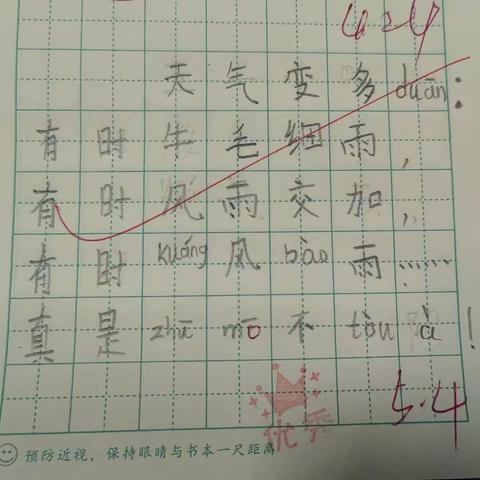 4.24
天气变多duān：
有时牛毛细雨，
有时风雨交加，
有时kuáng风bào雨……
真是zhuō mō不tòu à！
优秀
5.4
预防近视，保持眼睛与书本一尺距离